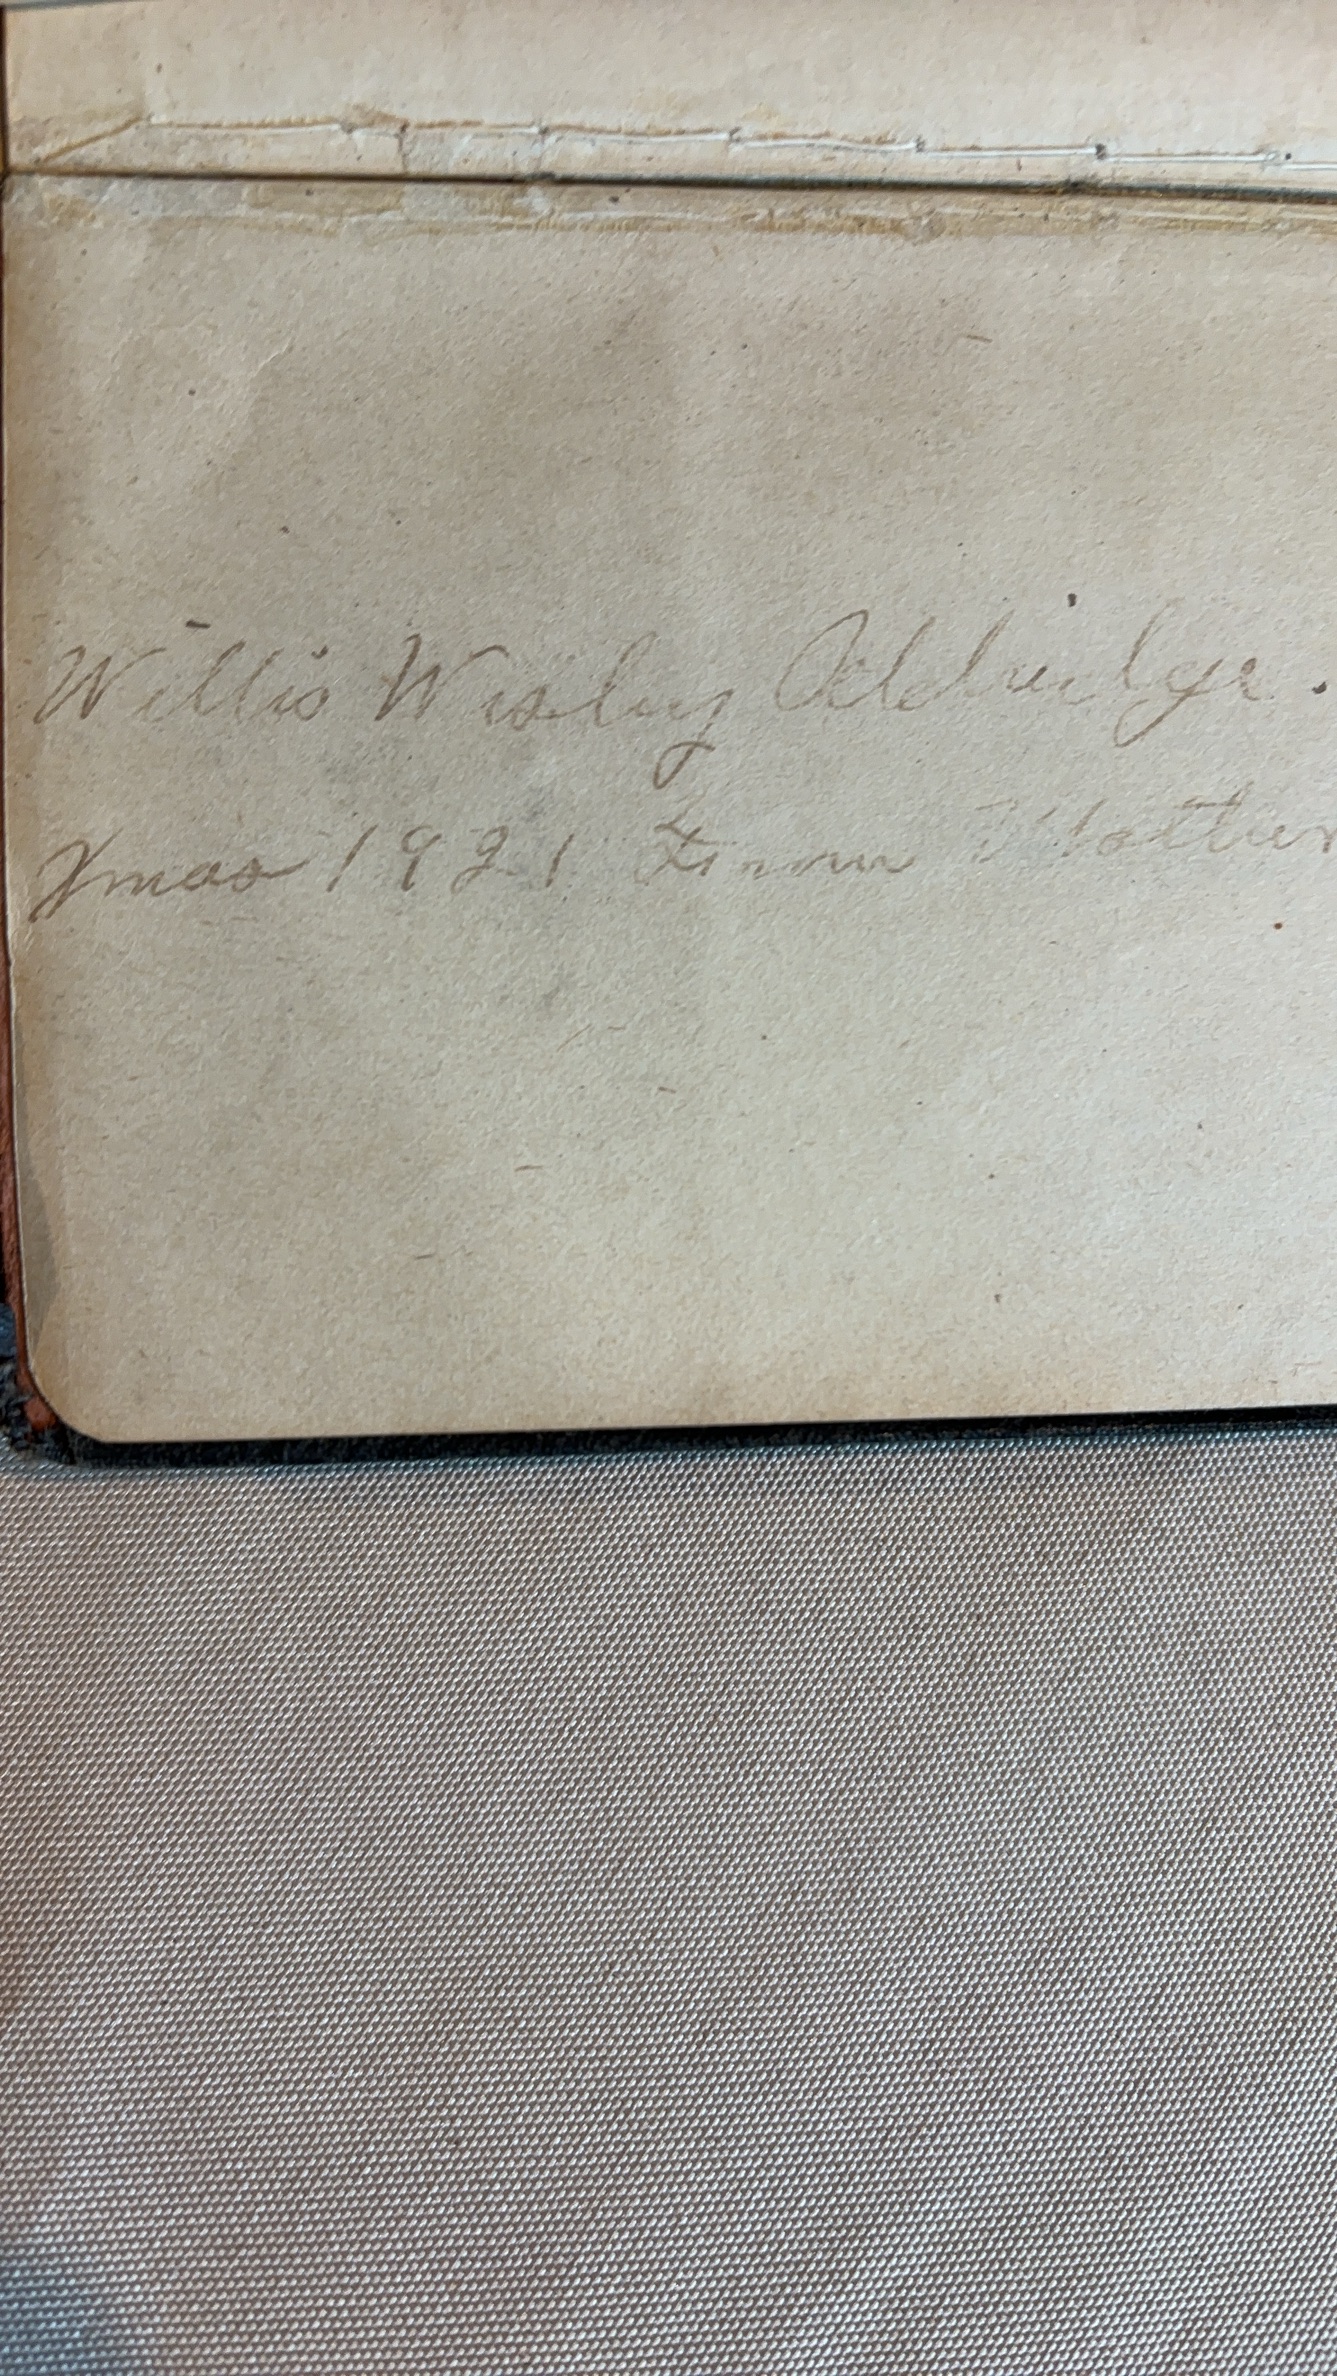 Willis Wesley Aldridge.
Xmas 1921 From Mother